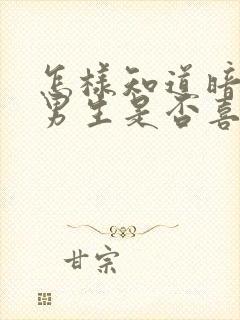 怎樣知道暗
男生是否喜
甘宗